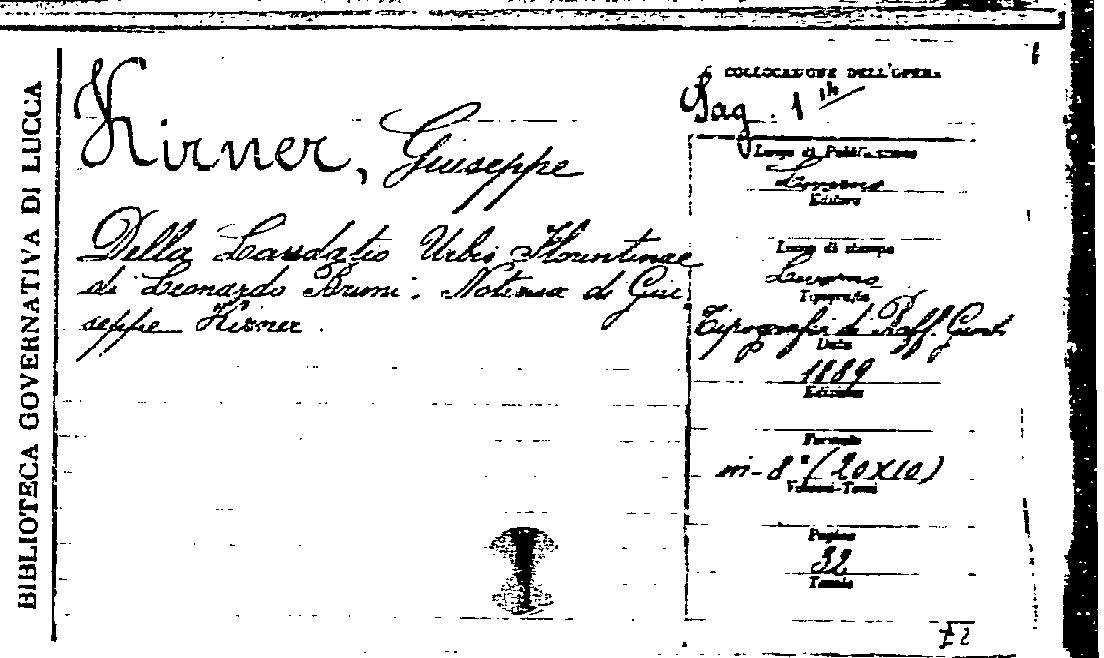 BIBLIOTECA GOVERNATIVA DI LUCCA
Kirner, Giuseppe
Della Laudatio Urbis Florentinae
di Leonardo Bruni. Notizia di Giu
seppe Kirner.
COLLOCAZIONE DELL'OPERA
Luogo di Pubblicazione
Livorno
Editore
Luogo di stampa
Livorno
Tipografia
Tipografia di Raff. Giusti
Data
1889
Edizione
Formato
in-8° (20x10)
Volumi-Tomi
Pagine
32
Tavole